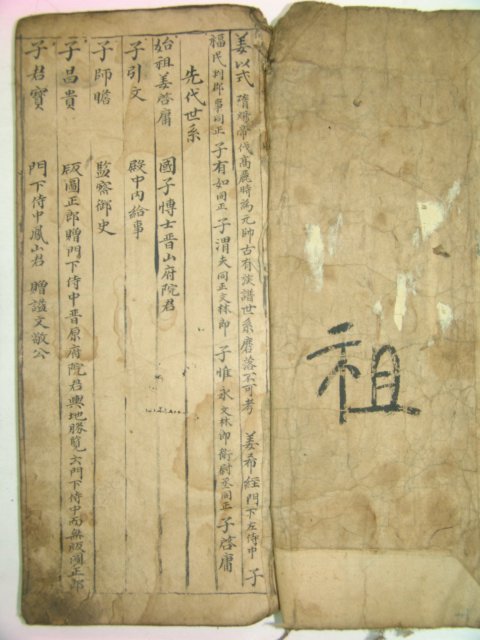 祖
姜以式 隋煬帝伐高麗時爲元帥古有族譜世系磨落不可考 姜希經門下左侍中 子
福民判郎事同正 子有如同正 子渭夫同正文林郎 子惟永文林郎衛尉丞同正 子啓庸
先代世系
始祖姜啓庸 國子博士晋山府院君
子引文 殿中內給事
子師瞻 監察御史
子昌貴 版圖正郎贈門下侍中晋原府院君輿地勝覽云門下侍中而無版圖正郎
子君寶 門下侍中鳳山君 贈諡文敬公